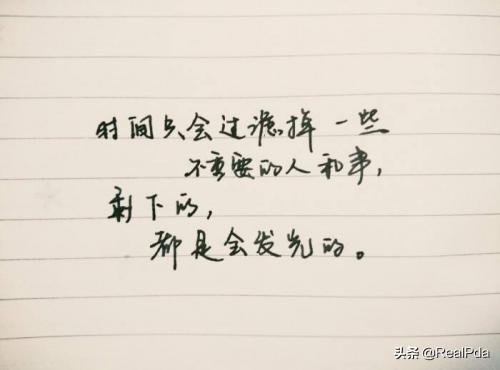 时间只会过滤掉一些
不重要的人和事，
剩下的，
都是会发光的。
头条 @RealPda